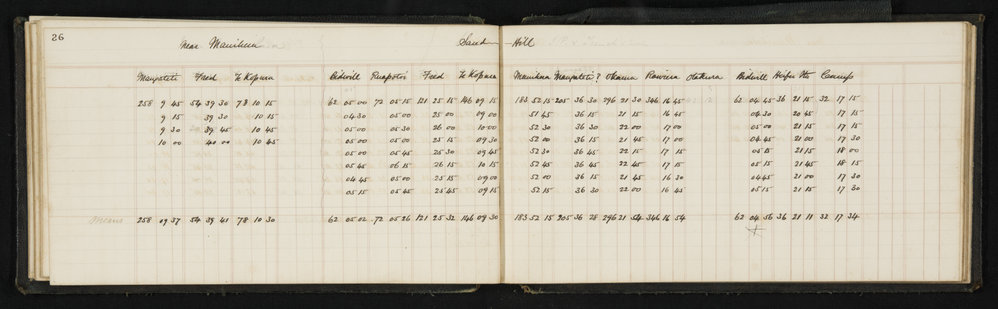 26
Near Manihera Sand Hill
Mangatete Faed Te Kopura Bidwill Ruapotoi Faed Te Kopura Manihera Mangatete ? Okauia Rawiera Otakura Bidwill Harper Mt Camp
258 9 45 54 39 30 78 10 15 62 05 00 72 05 15 121 25 15 146 09 15 183 52 15 205 36 30 296 21 30 346 16 45 62 04 45 36 21 15 32 17 15
9 15 39 30 10 15 04 30 05 00 25 00 09 00 51 45 36 15 21 15 16 45 04 30 20 45 17 15
9 30 39 45 10 45 05 00 05 30 26 00 10 00 52 30 36 30 22 00 17 00 05 00 21 15 17 15
10 00 40 00 10 45 05 00 05 00 25 15 09 30 52 00 36 15 21 45 17 00 04 45 21 00 17 30
05 00 05 45 25 30 09 45 52 30 36 45 22 15 17 15 05 15 21 15 18 00
05 45 06 15 26 15 10 15 52 45 36 45 22 45 17 15 05 15 21 45 18 15
04 45 05 00 25 15 09 00 52 00 36 15 21 45 16 30 04 45 21 00 17 30
05 15 05 45 25 45 09 15 52 15 36 30 22 00 16 45 05 15 21 15 17 30
Means 258 09 37 54 39 41 78 10 30 62 05 02 72 05 26 121 25 32 146 09 30 183 52 15 205 36 28 296 21 54 346 16 54 62 04 56 36 21 11 32 17 34